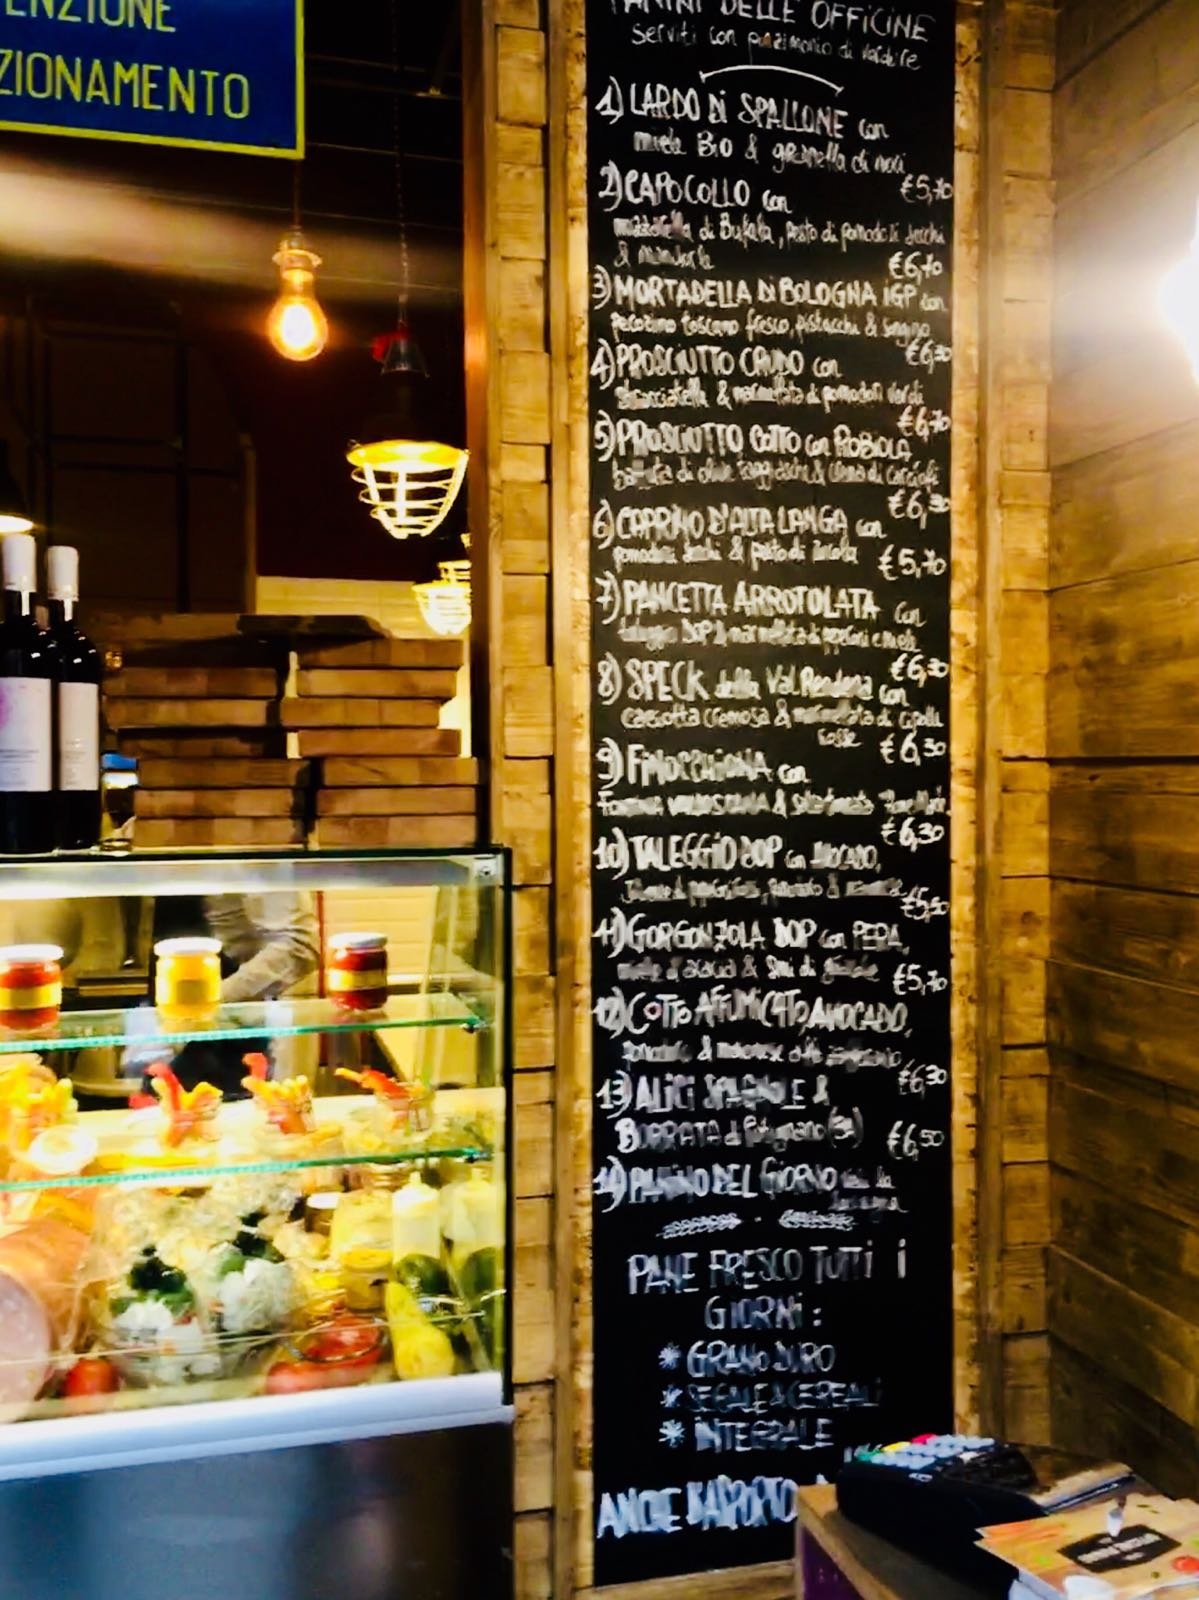 ENZIONE
ZIONAMENTO
PANINI DELLE OFFICINE
serviti con pinzimonio di verdure
1) LARDO Di SPALLONE con
miele BiO & granella di noci
€5,70
2) CAPOCOLLO con
mozzarella di Bufala, pesto di pomodori secchi
& mandorle
€6,70
3) MORTADELLA Di BOLOGNA IGP con
pecorino toscano fresco, pistacchi &
€6,30
4) PROSCIUTTO CRUDO con
stracciatella & marmellata di pomodori verdi
€6,70
5) PROSCIUTTO COTTO con ROBiOLA
di olive taggiasche & crema di carciofi
€6,30
6) CAPRINO D'ALTA LANGA con
pomodori secchi & pesto di rucola
€5,70
7) PANCETTA ARROTOLATA con
taleggio DOP & marmellata di peperoni e miele
€6,30
8) SPECK della Val Rendena con
caciotta cremosa & marmellata di cipolle
rosse
€6,30
9) FiNOCCHiONA con
FONTINA VALDOSTANA &
€6,30
10) TALEGGiO DOP con AVOCADO,
€5,50
11) GORGONZOLA DOP con PERA,
miele d'acacia & Semi di
€5,70
12) COTTO AFFUMICATO, AVOCADO,
pomodoro & maionese
€6,30
13) ALiCi SPAGNOLE &
BURRATA di
€6,50
14) PANINO DEL GiORNO
PANE FRESCO TUTTi i
GiORNi :
* GRANO DURO
* SEGALE & CEREALi
* iNTEGRALE
ANCHE D'ASPORTO